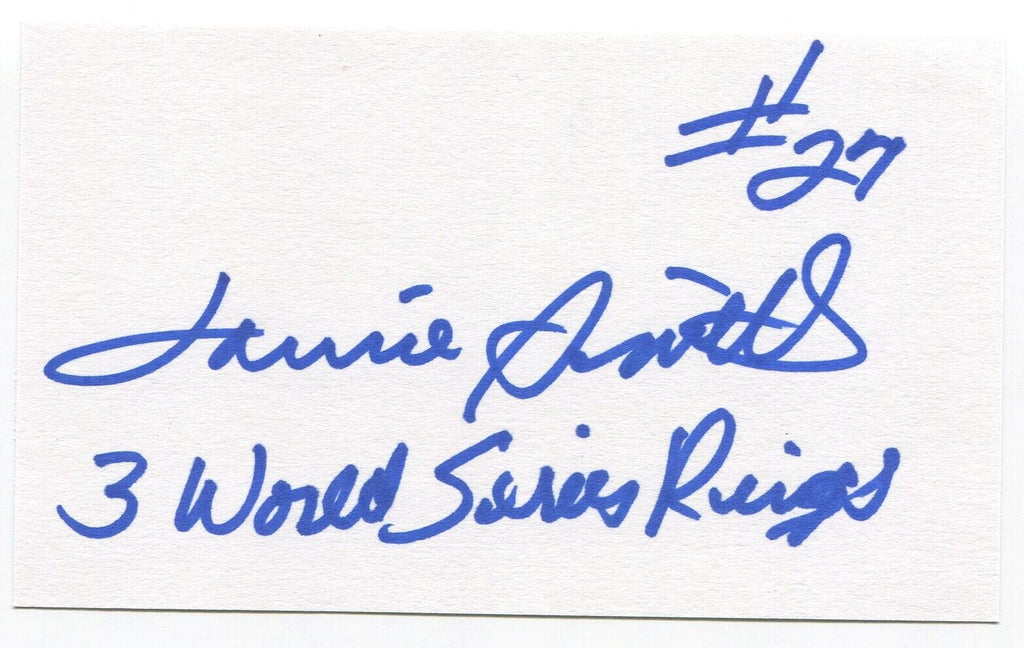 #27
Lonnie Smith
3 World Series Rings